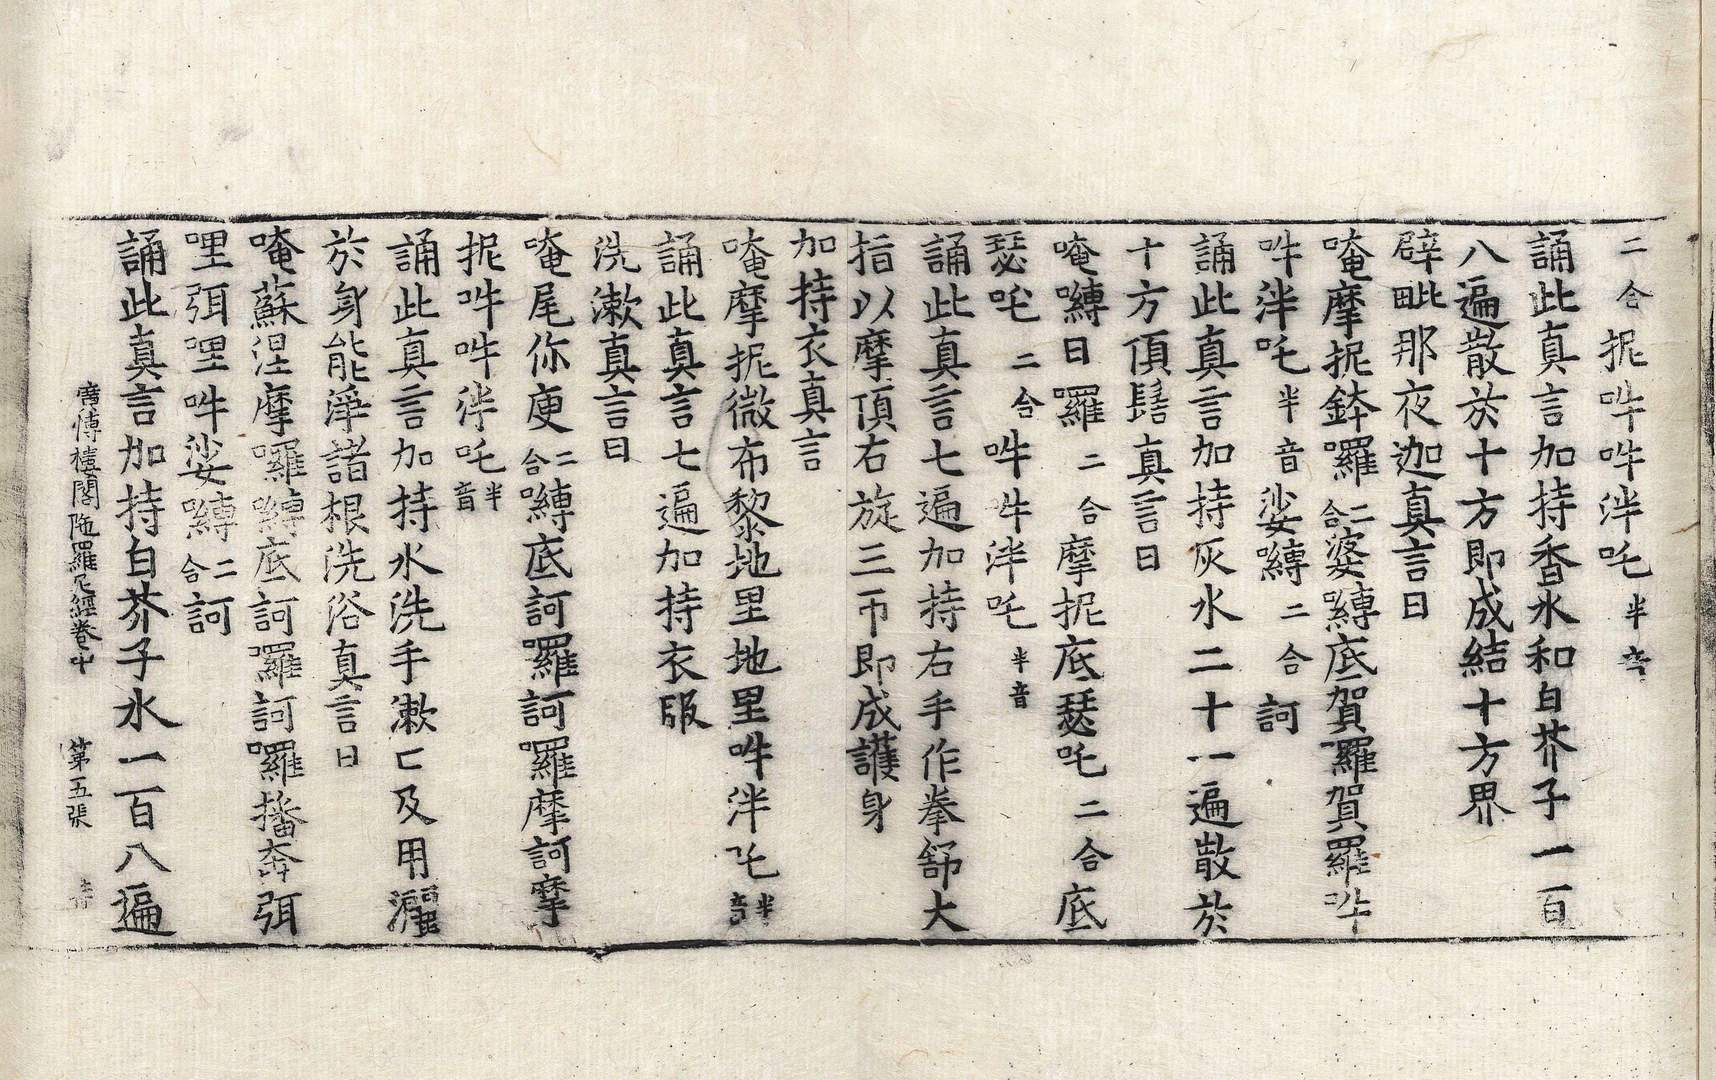 二合抳吽吽泮吒半音
誦此真言加持香水和白芥子一百
八遍散於十方即成結十方界
辟毗那夜迦真言曰
唵摩抳鉢囉二合婆嚩底賀羅賀羅吽
吽泮吒半音娑嚩二合訶
誦此真言加持灰水二十一遍散於
十方頂髻真言曰
唵嚩日囉二合摩抳底瑟吒二合底
瑟吒二合吽吽泮吒半音
誦此真言七遍加持右手作拳舒大
指以摩頂右旋三帀即成護身
加持衣真言
唵摩抳微布黎地里地里吽泮吒半音
誦此真言七遍加持衣服
洗漱真言曰
唵尾你庾二合嚩底訶囉訶囉摩訶摩
抳吽吽泮吒半音
誦此真言加持水洗手漱口及用灑
於身能淨諸根洗浴真言曰
唵蘇涅摩囉嚩底訶囉訶囉播奔弭
哩弭哩吽娑嚩二合訶
誦此真言加持白芥子水一百八遍
樓閣陁羅尼經卷中　第五張